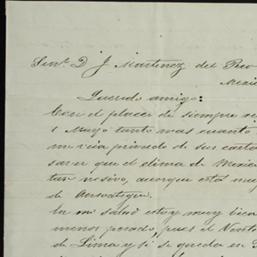 Sen.r D. J. Martinez del Rio
Mexico
Querido amigo:
Con el placer de siempre re
1 Mayo tanto mas cuanto
me veia privado de sus carta
saver que el clima de Mexico
tan nocivo, aunque está muy
de
En mi salud estoy muy bien
menos pesado, pues el
de Lima y si se queda en